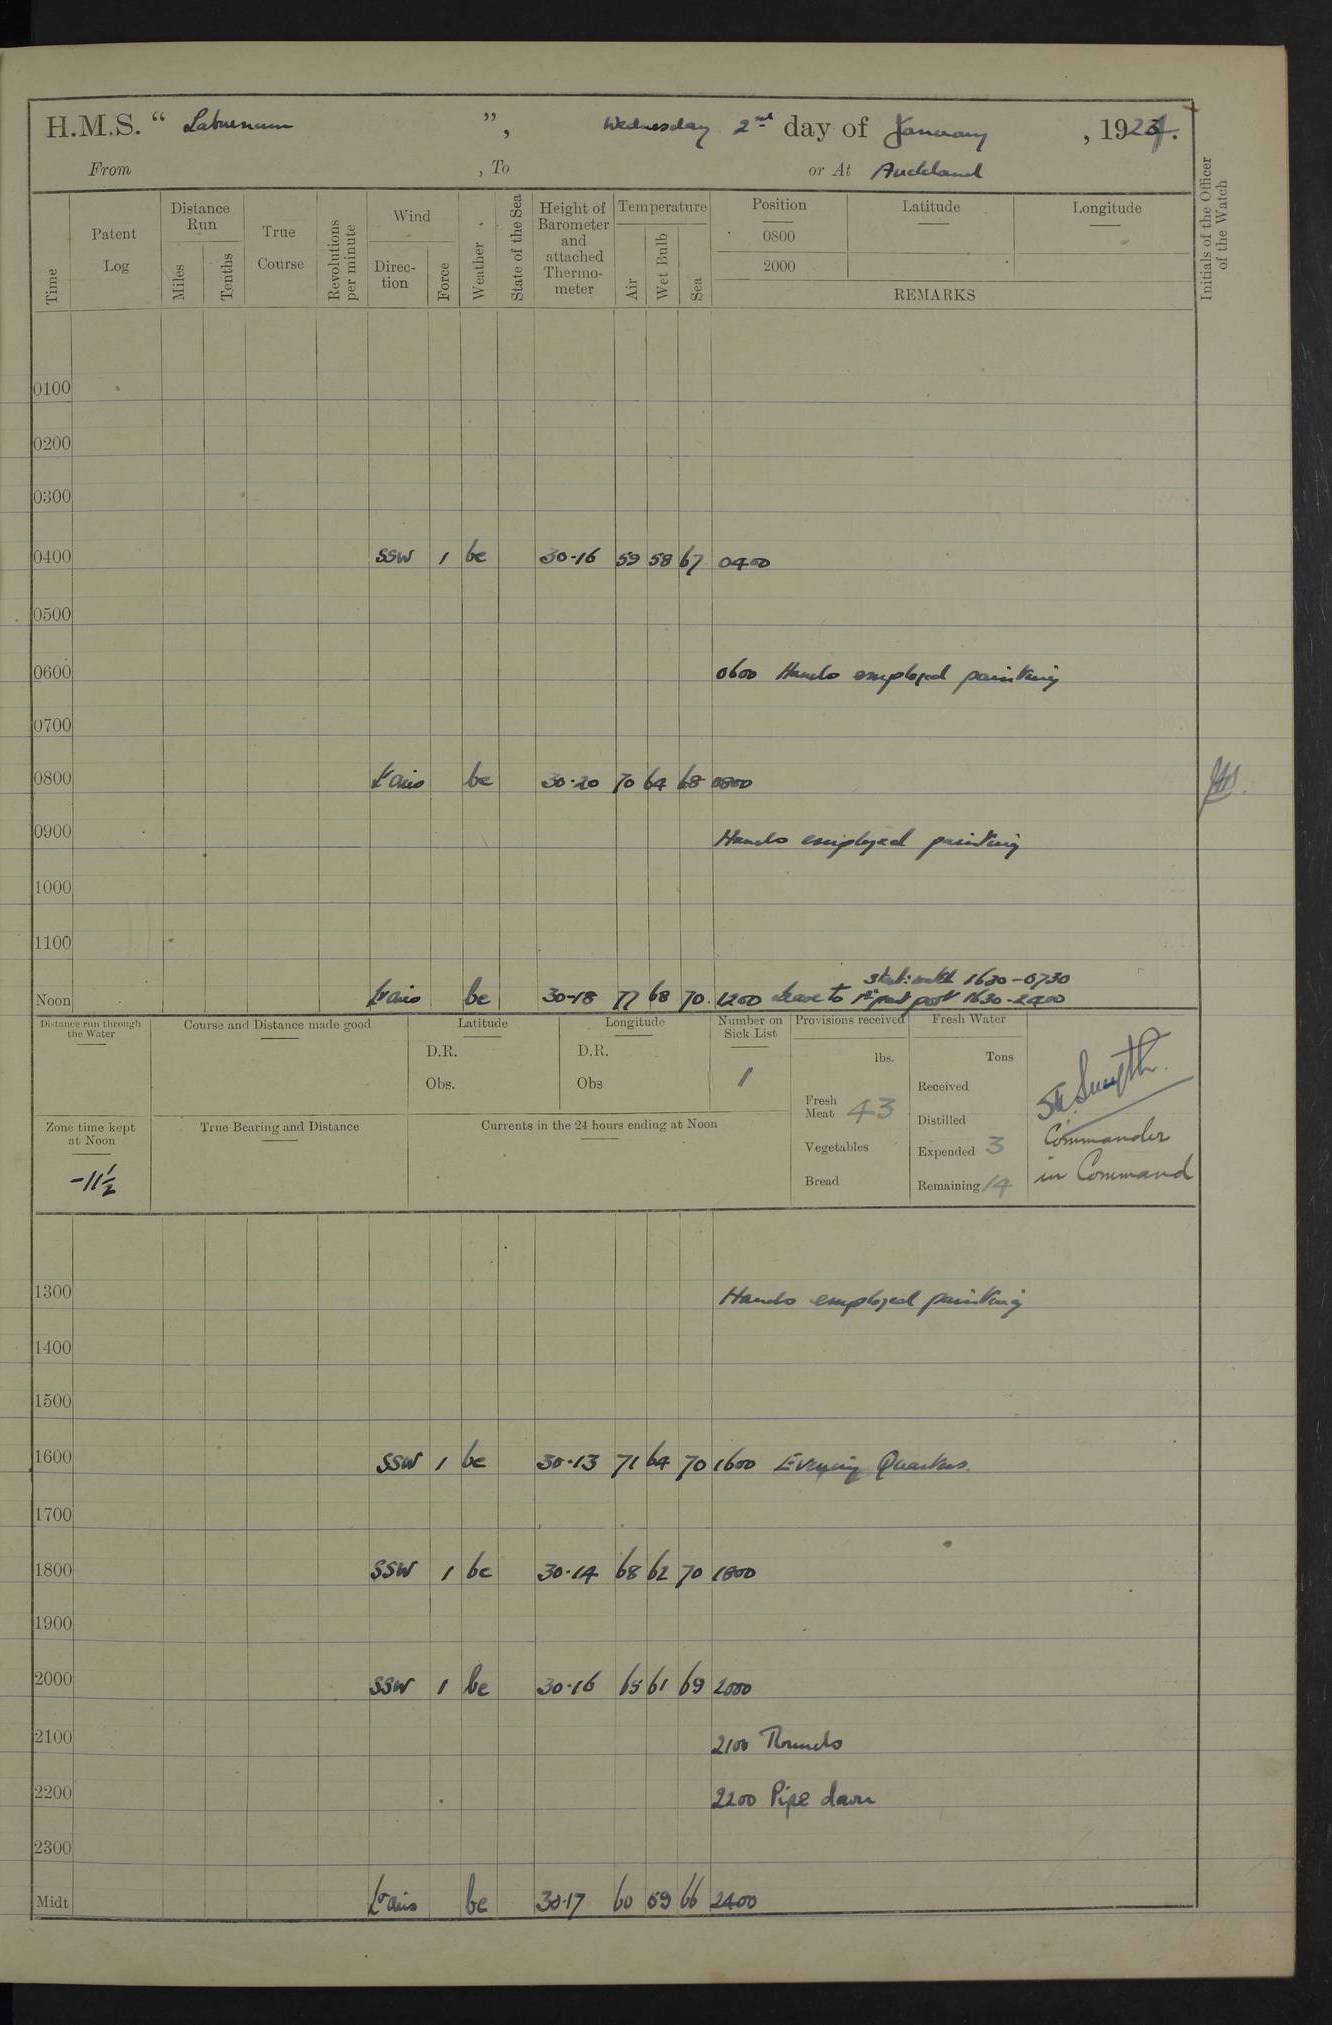 H.M.S. " Laburnum ", Wednesday 2nd day of January, 1924.
From , To or At Auckland
Time
Patent Log
Distance Run
Miles
Tenths
True Course
Revolutions per minute
Wind
Direction
Force
Weather
State of the Sea
Height of Barometer and attached Thermometer
Temperature
Air
Wet Bulb
Sea
Position
0800
2000
Latitude
Longitude
REMARKS
Initials of the Officer of the Watch
0100
0200
0300
0400 SSW 1 bc 30·16 59 58 67 0400
0500
0600 0600 Hands employed painting
0700
0800 Lt airs bc 30·20 70 64 68 0800
0900 Hands employed painting
1000
1100
1630-0730
Noon Lt airs bc 30-18 77 68 70 1200 Leave to 1st part port 1630-2400
Distance run through the Water
Course and Distance made good
Latitude
D.R.
Obs.
Longitude
D.R.
Obs
Number on Sick List
1
Provisions received
lbs.
Fresh Meat 43
Vegetables
Bread
Fresh Water
Tons
Received
Distilled
Expended 3
Remaining 14
Smyth.
Commander
in Command
Zone time kept at Noon
-11½
True Bearing and Distance
Currents in the 24 hours ending at Noon
1300 Hands employed painting
1400
1500
1600 SSW 1 bc 30·13 71 64 70 1600 Evening Quarters.
1700
1800 SSW 1 bc 30·14 68 62 70 1800
1900
2000 SSW 1 bc 30·16 65 61 69 2000
2100 2100 Rounds
2200 2200 Pipe down
2300
Midt Lt airs bc 30·17 60 59 66 2400